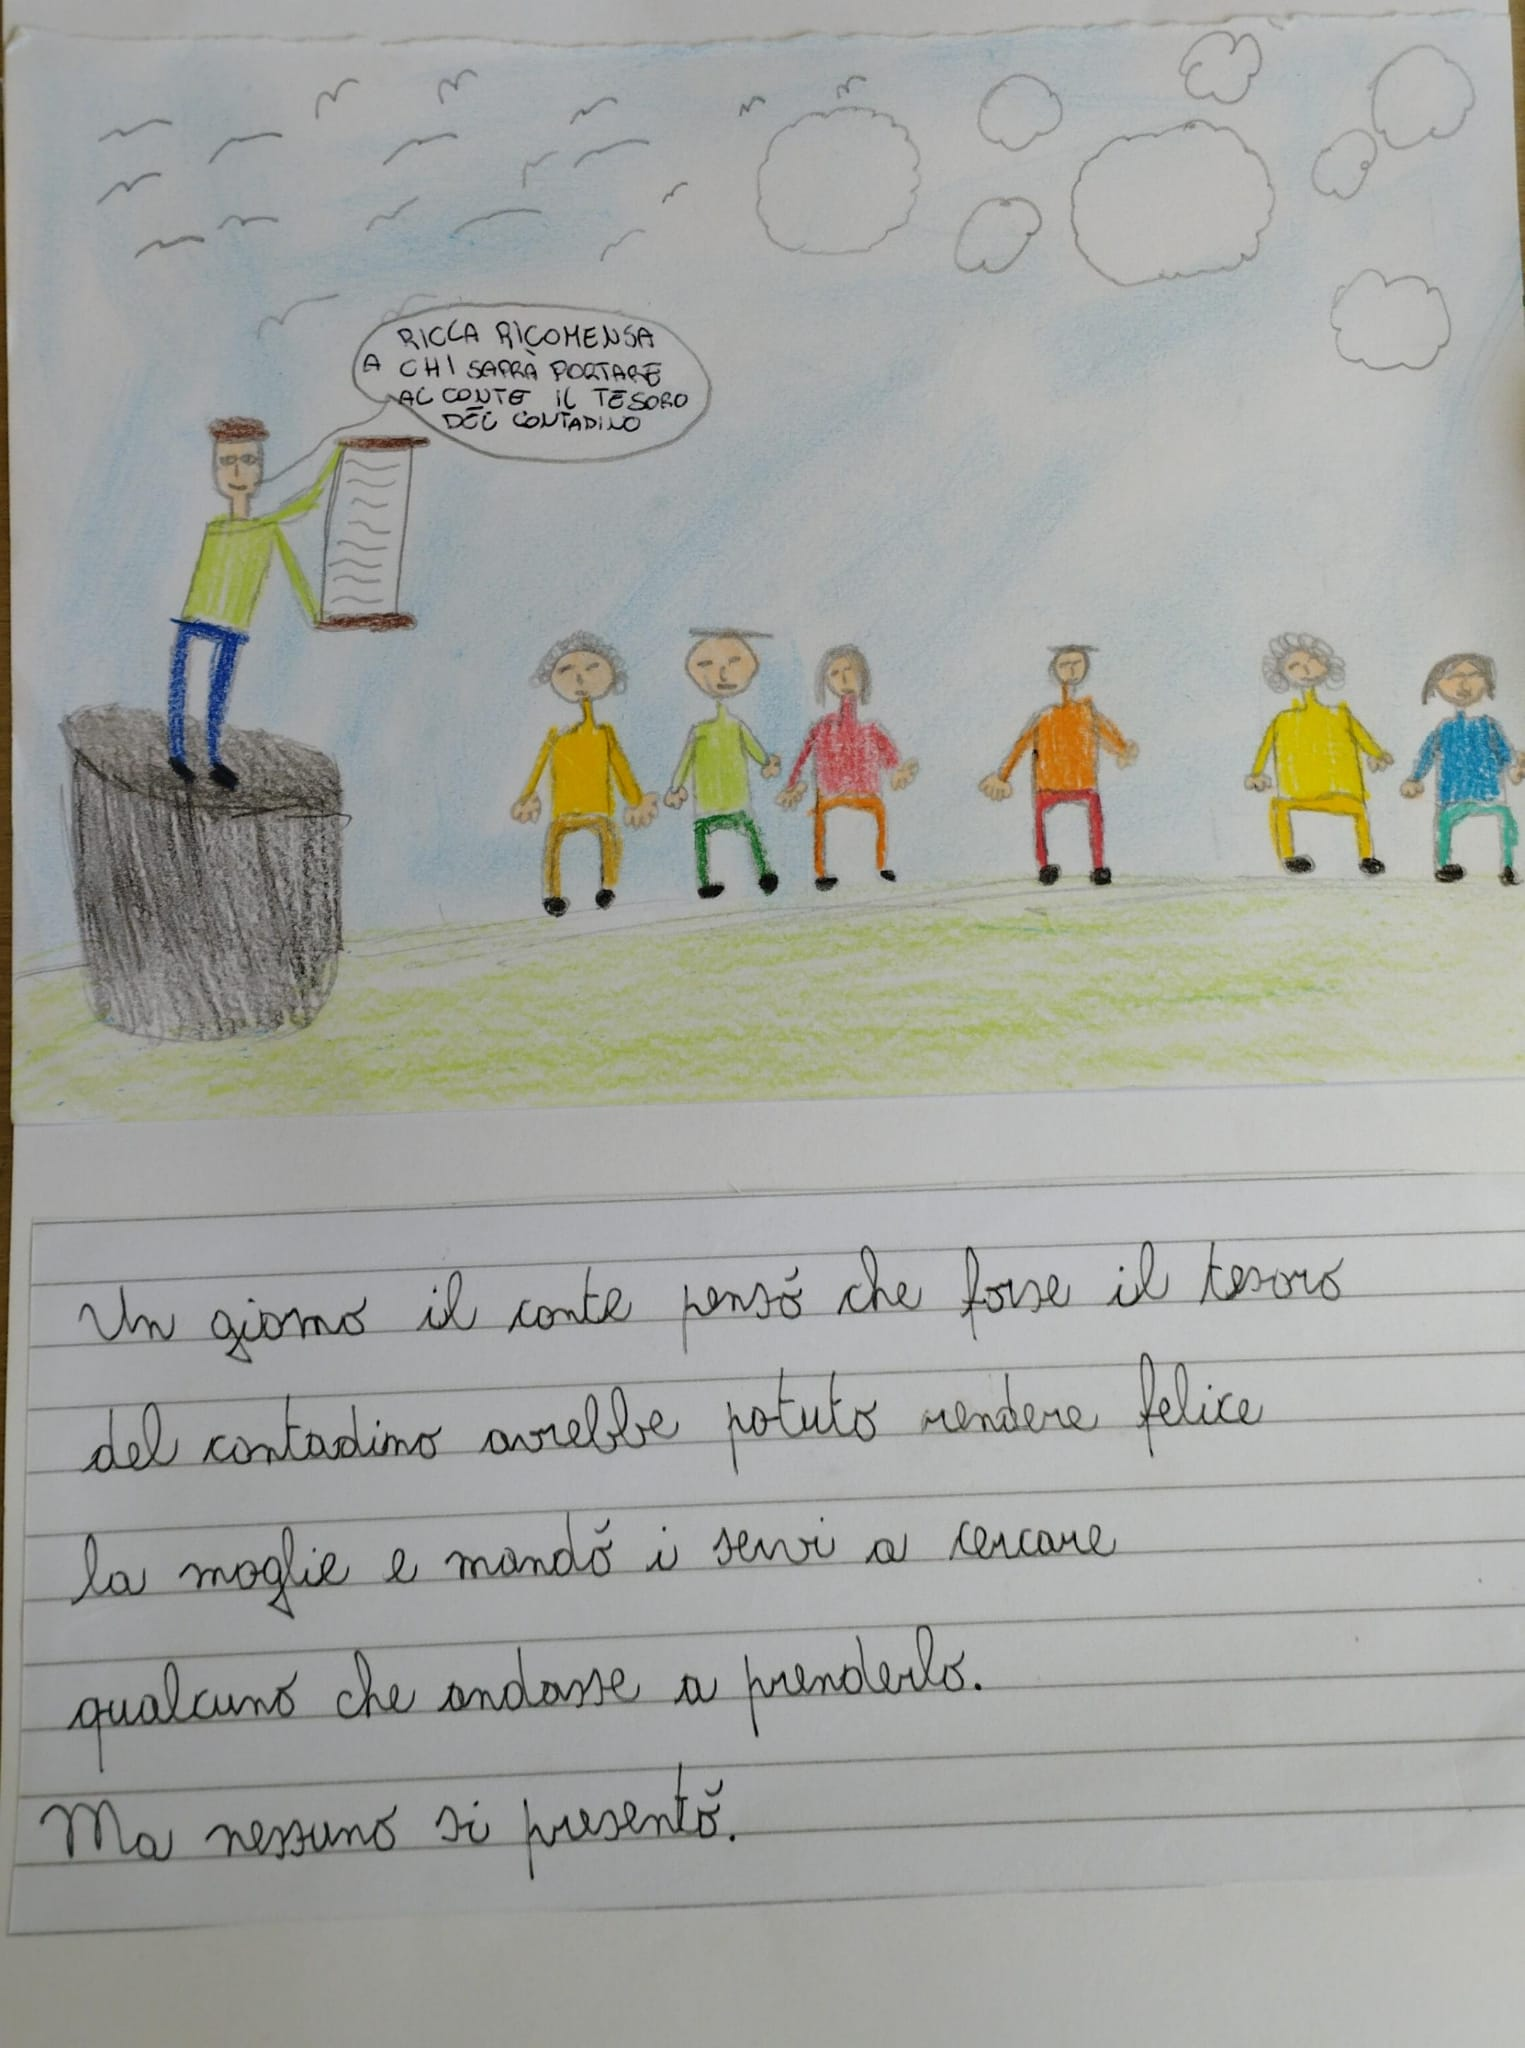 RICCA RICOMENSA
A CHI SAPRÀ PORTARE
AL CONTE IL TESORO
DEL CONTADINO
Un giorno il conte pensò che forse il tesoro
del contadino avrebbe potuto rendere felice
la moglie e mandò i servi a cercare
qualcuno che andasse a prenderlo.
Ma nessuno si presentò.